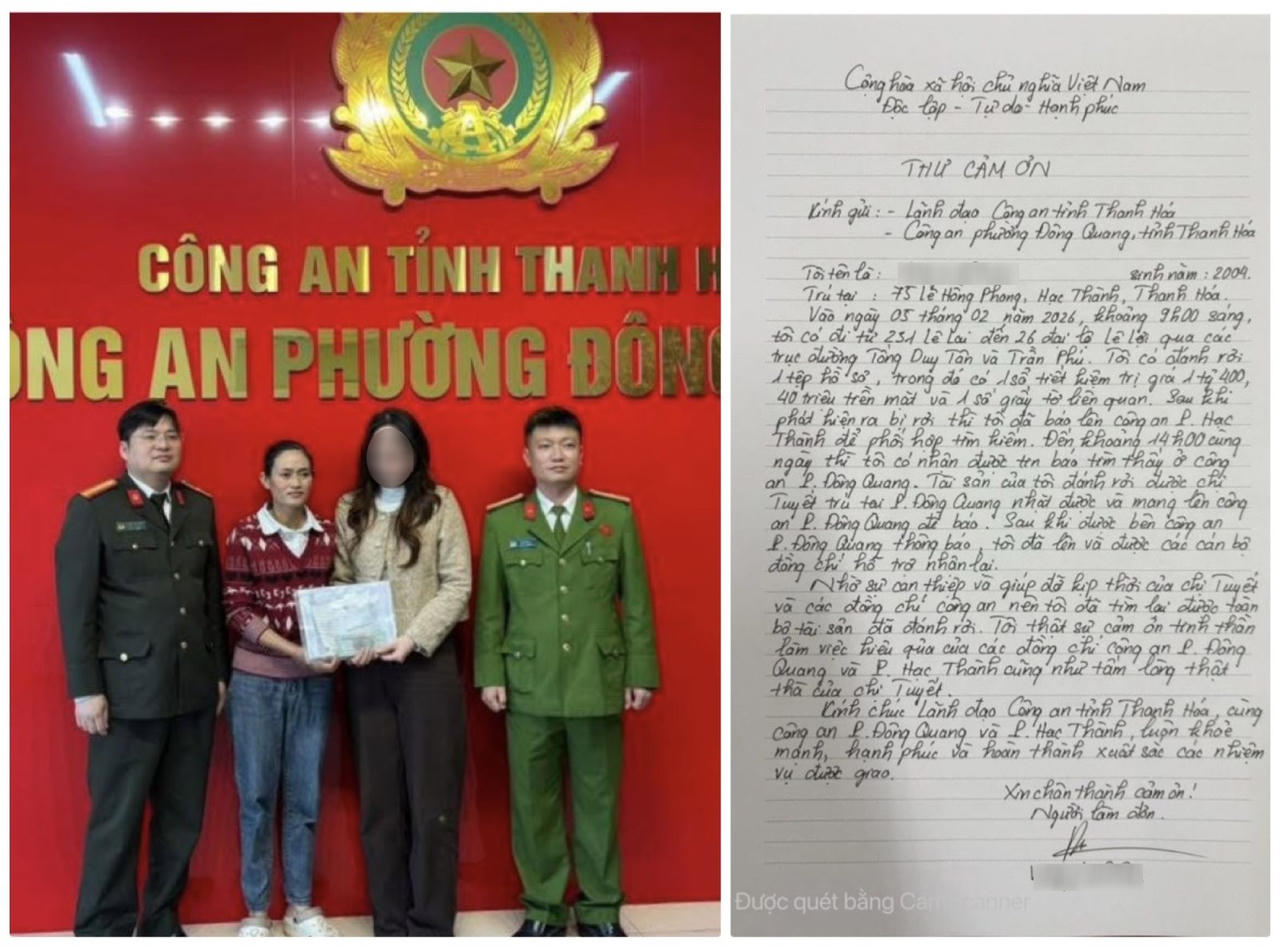 CÔNG AN TỈNH THANH H
ÔNG AN PHƯỜNG ĐÔNG
Cộng hòa xã hội chủ nghĩa Việt Nam
Độc lập - Tự do - Hạnh phúc
THƯ CẢM ƠN
Kính gửi : - Lãnh đạo Công an tỉnh Thanh Hóa
- Công an phường Đông Quang, tỉnh Thanh Hóa
Tôi tên là : sinh năm : 2004.
Trú tại : 75 Lê Hồng Phong, Hạc Thành, Thanh Hóa.
Vào ngày 05 tháng 02 năm 2026, khoảng 9h00 sáng,
tôi có đi từ 251 Lê Lai đến 26 đại lộ Lê Lợi qua các
trục đường Tống Duy Tân và Trần Phú. Tôi có đánh rơi
1 tệp hồ sơ, trong đó có 1 sổ tiết kiệm trị giá 1 tỷ 400,
40 triệu tiền mặt và 1 số giấy tờ liên quan. Sau khi
phát hiện ra bị rơi thì tôi đã báo lên công an P. Hạc
Thành để phối hợp tìm kiếm. Đến khoảng 14h00 cùng
ngày thì tôi có nhận được tin báo tìm thấy ở công
an P. Đông Quang. Tài sản của tôi đánh rơi được chị
Tuyết trú tại P. Đông Quang nhặt được và mang lên công
an P. Đông Quang để báo. Sau khi được bên công an
P. Đông Quang thông báo, tôi đã lên và được các cán bộ
đồng chí hỗ trợ nhận lại.
Nhờ sự can thiệp và giúp đỡ kịp thời của chị Tuyết
và các đồng chí công an nên tôi đã tìm lại được toàn
bộ tài sản đã đánh rơi. Tôi thật sự cảm ơn tinh thần
làm việc hiệu quả của các đồng chí công an P. Đông
Quang và P. Hạc Thành cũng như tấm lòng thật
thà của chị Tuyết.
Kính chúc Lãnh đạo Công an tỉnh Thanh Hóa, cùng
công an P. Đông Quang và P. Hạc Thành, luôn khỏe
mạnh, hạnh phúc và hoàn thành xuất sắc các nhiệm
vụ được giao.
Xin chân thành cảm ơn !
Người làm đơn.
Được quét bằng CamScanner